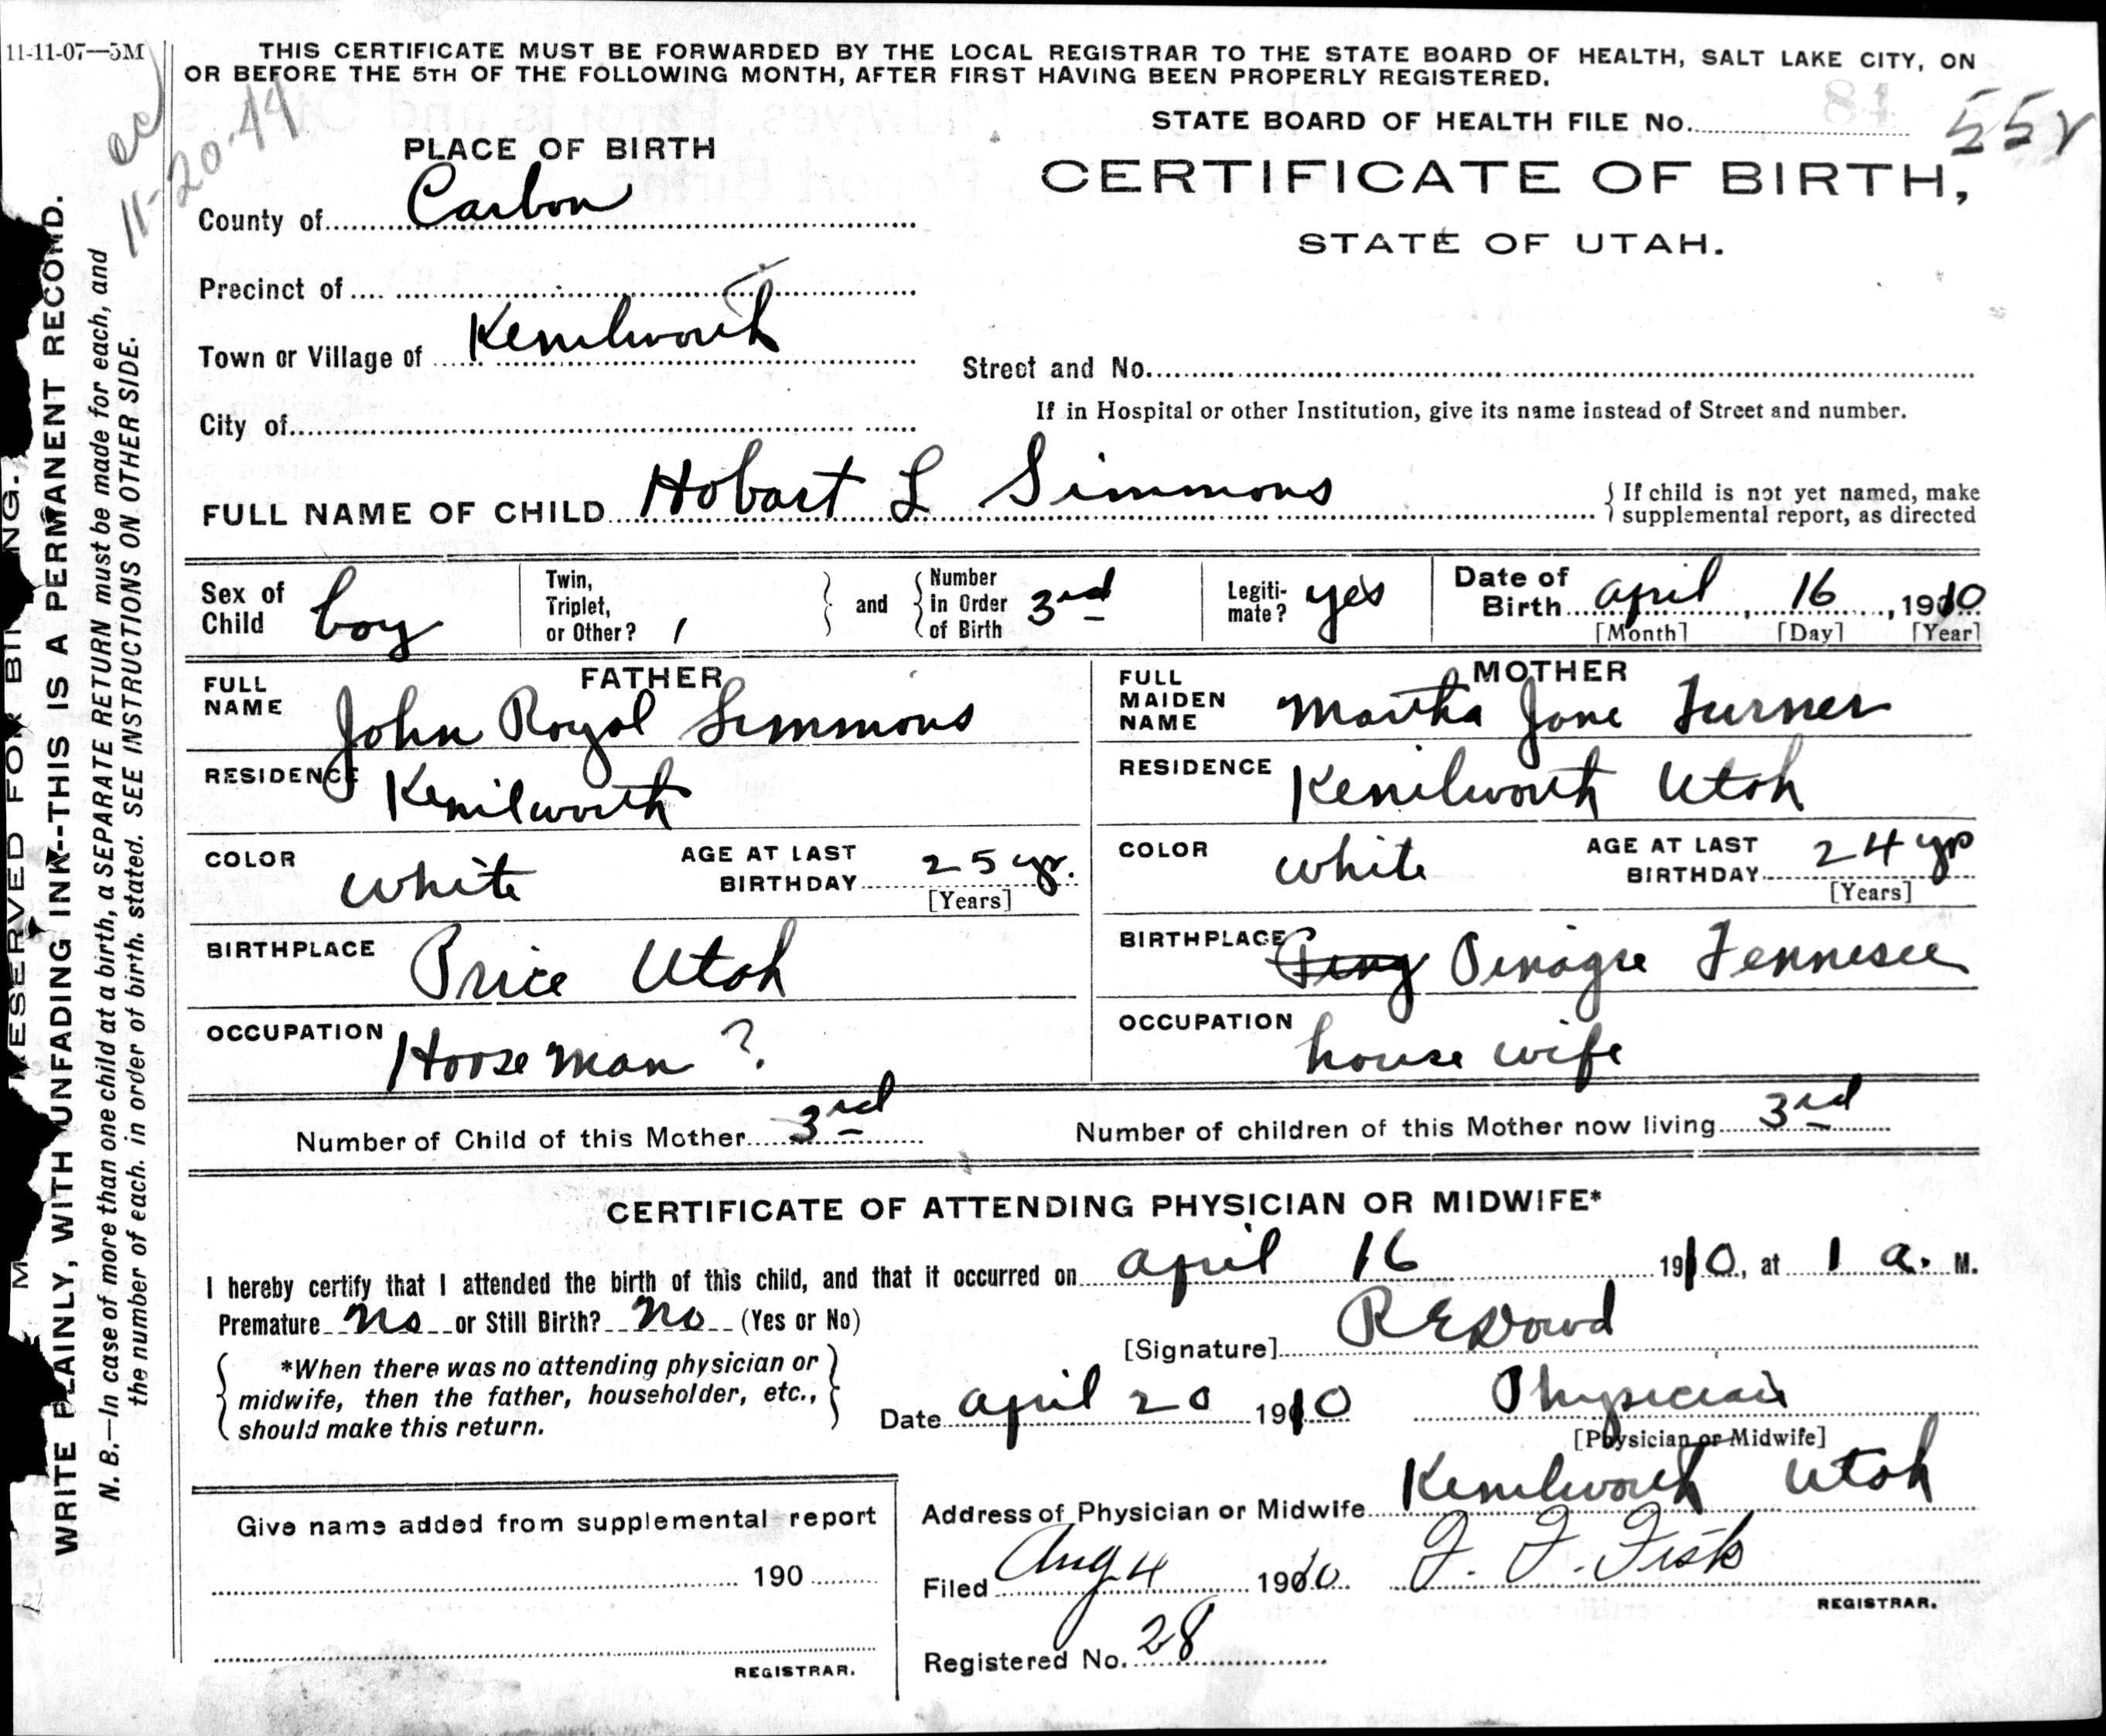 11-11-07—5M
THIS CERTIFICATE MUST BE FORWARDED BY THE LOCAL REGISTRAR TO THE STATE BOARD OF HEALTH, SALT LAKE CITY, ON
OR BEFORE THE 5TH OF THE FOLLOWING MONTH, AFTER FIRST HAVING BEEN PROPERLY REGISTERED.
11-20-44
STATE BOARD OF HEALTH FILE No. 84
PLACE OF BIRTH
CERTIFICATE OF BIRTH,
STATE OF UTAH.
County of Carbon
Precinct of
Town or Village of Kenilworth
Street and No.
If in Hospital or other Institution, give its name instead of Street and number.
City of
FULL NAME OF CHILD Hobart L Simmons
{ If child is not yet named, make
supplemental report, as directed
Sex of Child boy
Twin, Triplet, or Other? 1 } and { Number in Order of Birth 3rd
Legiti-mate? yes
Date of Birth april, 16, 1910
[Month] [Day] [Year]
FATHER
FULL NAME John Royal Simmons
RESIDENCE Kenilworth
COLOR white
AGE AT LAST BIRTHDAY 25 yr.
[Years]
BIRTHPLACE Price Utah
OCCUPATION Horse man ?
MOTHER
FULL MAIDEN NAME Martha Jane Turner
RESIDENCE Kenilworth Utah
COLOR white
AGE AT LAST BIRTHDAY 24 yrs
[Years]
BIRTHPLACE Tennesee
OCCUPATION house wife
Number of Child of this Mother 3rd
Number of children of this Mother now living 3rd
CERTIFICATE OF ATTENDING PHYSICIAN OR MIDWIFE*
I hereby certify that I attended the birth of this child, and that it occurred on april 16 1910, at 1 a. M.
Premature no or Still Birth? no (Yes or No)
[Signature]
{ *When there was no attending physician or
midwife, then the father, householder, etc.,
should make this return. }
Date april 20 1910
Physician
[Physician or Midwife]
Address of Physician or Midwife Kenilworth Utah
Filed Aug 4 1910 F. F. Fisk
REGISTRAR.
Registered No. 28
Give name added from supplemental report
190
REGISTRAR.
RESERVED FOR BINDING.
WRITE PLAINLY, WITH UNFADING INK--THIS IS A PERMANENT RECORD.
N. B.—In case of more than one child at a birth, a SEPARATE RETURN must be made for each, and
the number of each. in order of birth. stated. SEE INSTRUCTIONS ON OTHER SIDE.